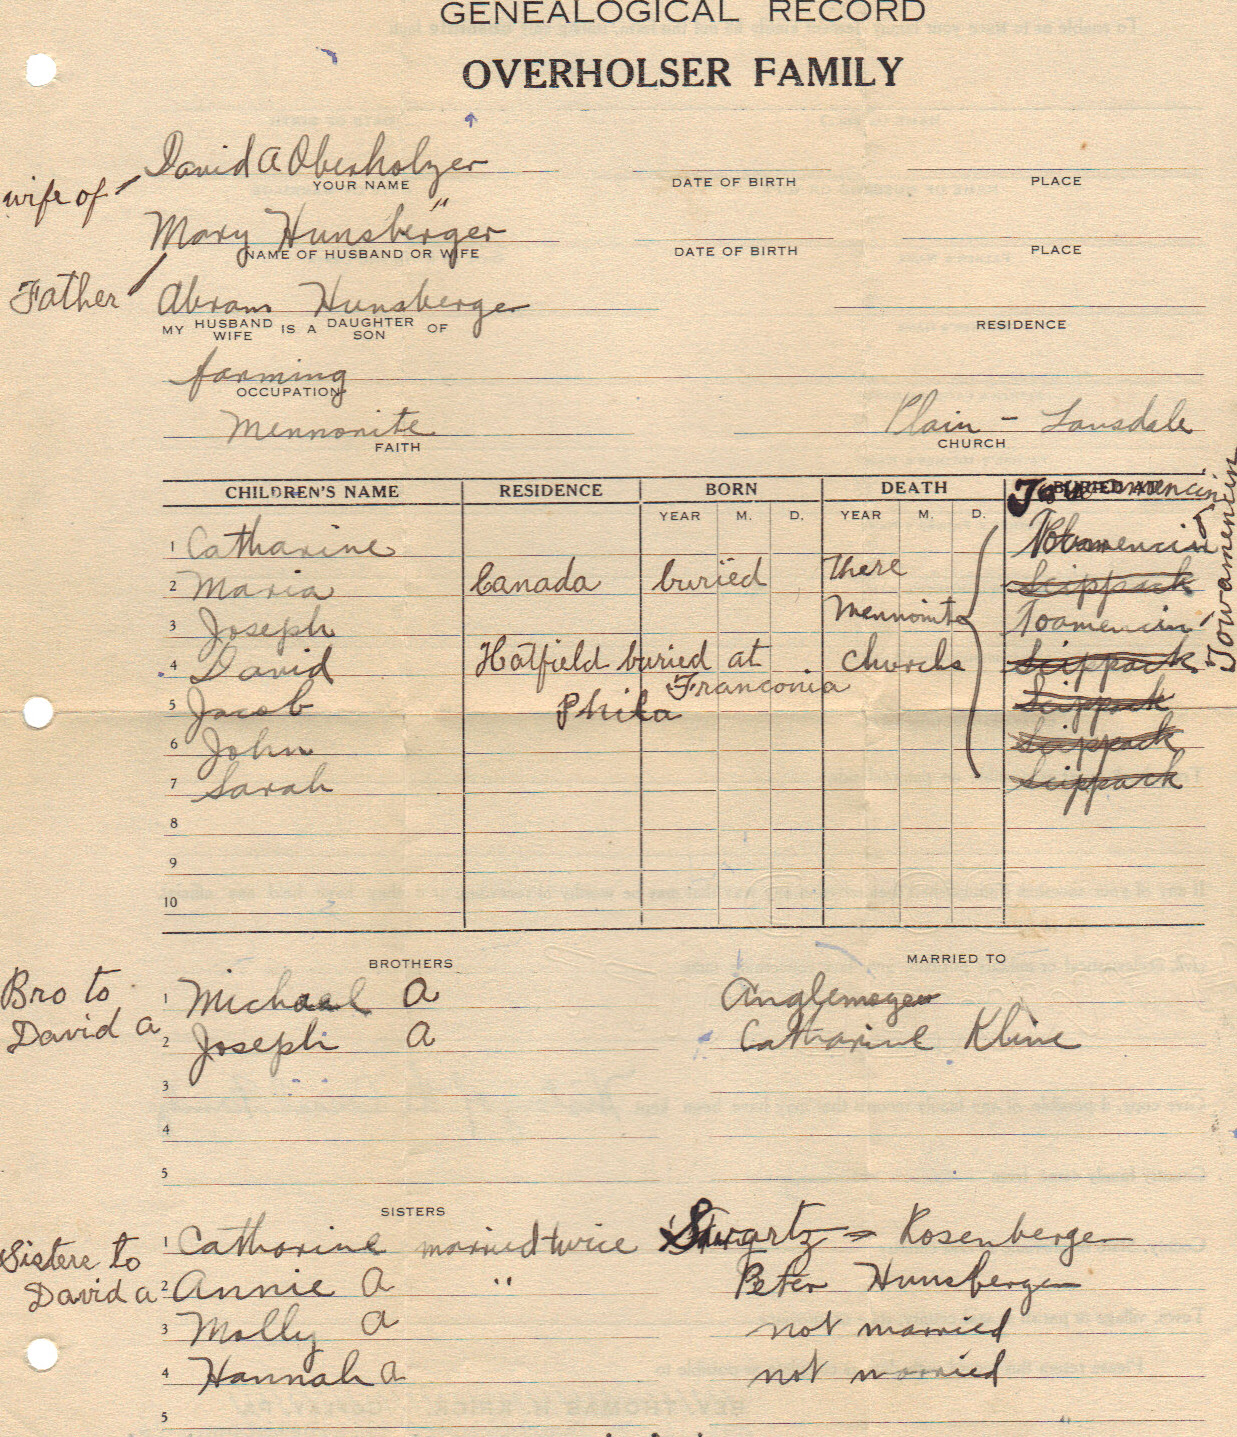 GENEALOGICAL RECORD
OVERHOLSER FAMILY
David A Oberholzer
YOUR NAME DATE OF BIRTH PLACE
wife of
Mary Hunsberger "
NAME OF HUSBAND OR WIFE DATE OF BIRTH PLACE
Father Abram Hunsberger
MY HUSBAND WIFE IS A DAUGHTER SON OF RESIDENCE
farming
OCCUPATION
Mennonite Plain - Lansdale
FAITH CHURCH
CHILDREN'S NAME RESIDENCE BORN DEATH BURIED AT
YEAR M. D. YEAR M. D.
1 Catharine
2 Maria Canada buried there Scippack
3 Joseph Mennonite Toamencin
4 David Hatfield buried at Church Scippack
5 Jacob Phila Franconia Scippack
6 John Scippack
7 Sarah Scippack
8
9
10
Towamencin
BROTHERS MARRIED TO
Bro to David A
1 Michael A Anglemoyer
2 Joseph A Catharine Kline
3
4
5
SISTERS
Sisters to David A
1 Catharine married twice Swartz = Rosenberger
2 Annie A " Peter Hunsberger
3 Molly A not married
4 Hannah A not married
5 "